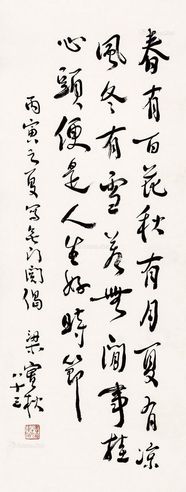 春有百花秋有月夏有凉
風冬有雪若無閒事挂
心頭便是人生好時節
丙寅之夏寫無門關偈 梁實秋
八十三